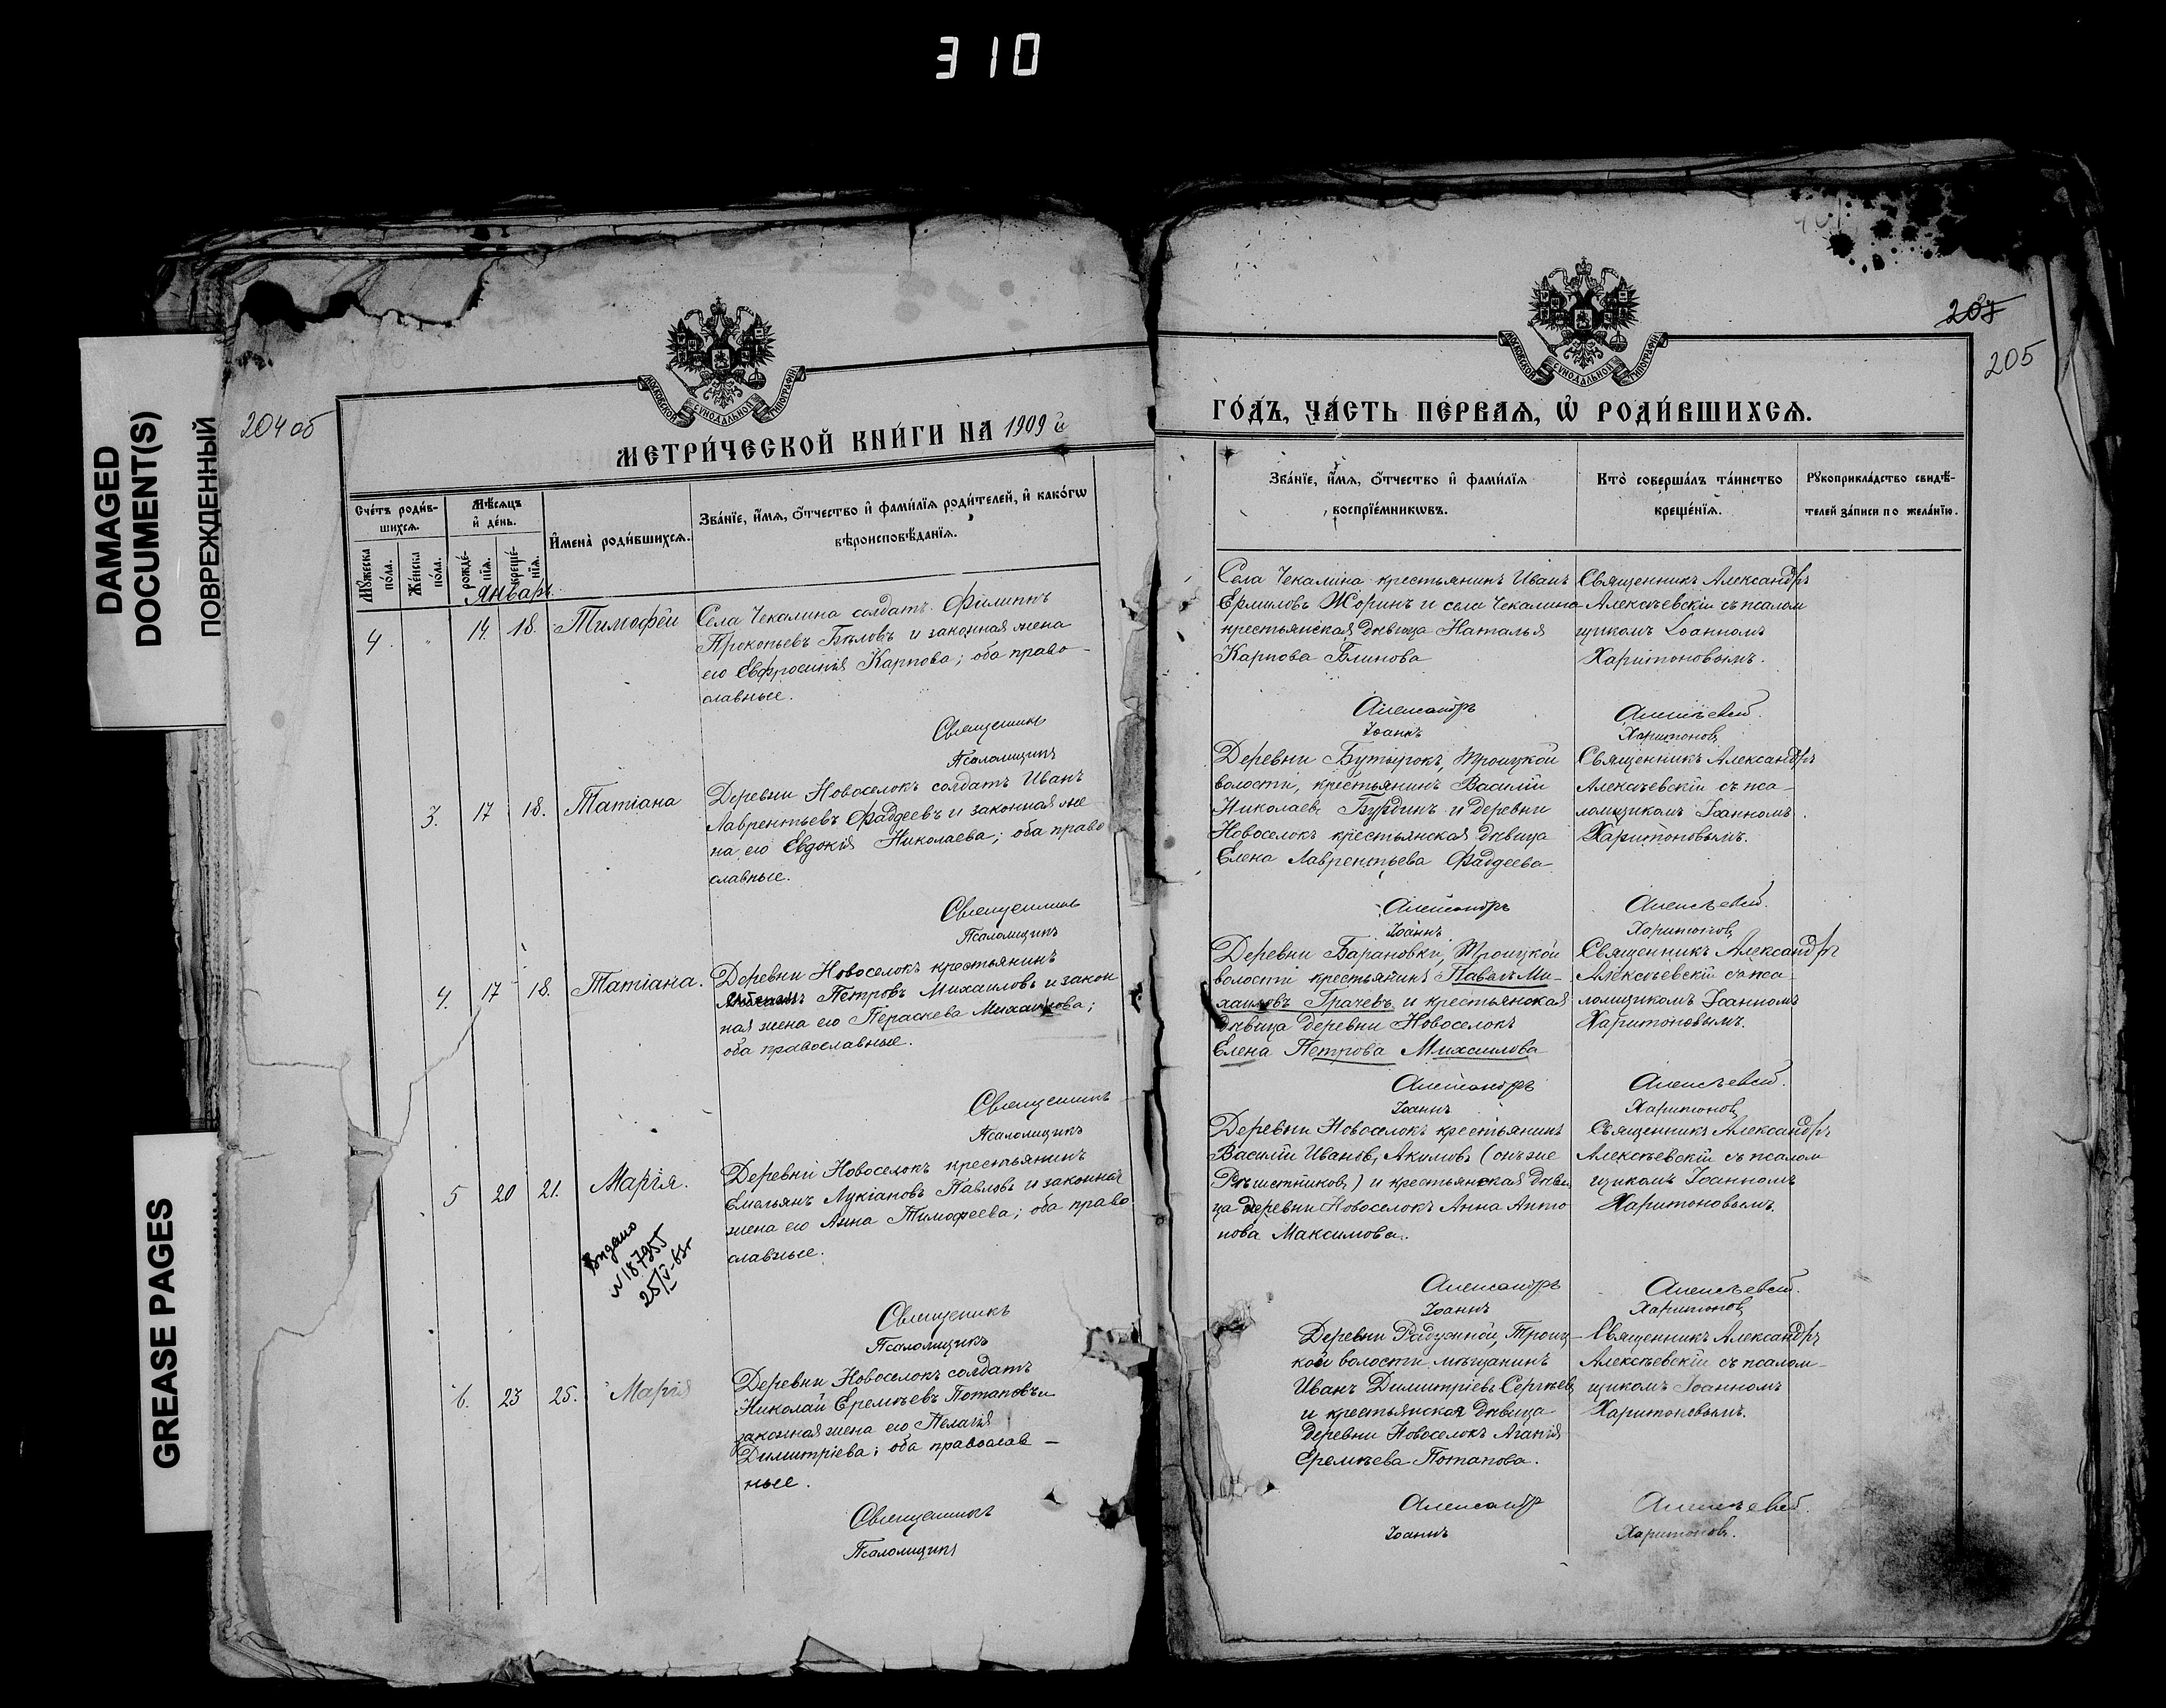 310
DAMAGED
DOCUMENT(S)
ПОВРЕЖДЕННЫЙ
GREASE PAGES
204 об
МОСКОВСКОЙ СУНОДАЛЬНОЙ ТИПОГРАФІИ
МЕТРИ́ЧЕСКОЙ КНИ́ГИ НА 1909 й
Сче́тъ роди́в-
шихсѧ.
Мѣ́сѧцъ
и҆ де́нь.
И҆мена̀ роди́вшихсѧ.
Зва́нїе, и҆́мѧ, о҆́тчество и҆ фами́лїѧ роди́телей, и҆ како́гѡ
вѣроисповѣ́данїѧ.
Мꙋ́жеска
по́ла.
Же́нска
по́ла.
рожде́-
нїѧ.
креще́-
нїѧ.
Январь.
4 " 14. 18. Тимофей
Села Чекалина солдатъ Филиппъ
Прокопьевъ Бѣловъ и законная жена
его Евфросинія Карпова; оба право-
славные.
Священникъ
Псаломщикъ
3. 17 18. Татіана
Деревни Новоселокъ солдатъ Иванъ
Лаврентьевъ Фаддеевъ и законная же
на его Евдокія Николаева; оба право
славные.
Священникъ
Псаломщикъ
4. 17 18. Татіана.
Деревни Новоселокъ крестьянинъ
Петровъ Михаиловъ и закон
ная жена его Параскева Михаилова;
оба православные.
Священникъ
Псаломщикъ
5 20 21. Марія.
Деревни Новоселокъ крестьянинъ
Емельянъ Лукіановъ Павловъ и законная
жена его Анна Тимофеева; оба право
славные.
Выдано
№ 187955
25/V-63г
Священникъ
Псаломщикъ
6. 23 25. Марія
Деревни Новоселокъ солдатъ
Николай Еремѣевъ Потаповъ и
законная жена его Пелагія
Димитріева; оба православ-
ные.
Священникъ
Псаломщикъ
207
205
МОСКОВСКОЙ СУНОДАЛЬНОЙ ТИПОГРАФІИ
ГО́ДЪ, ЧА́СТЬ ПЕ́РВАѦ, Ѡ҆ РОДИ́ВШИХСѦ.
Зва́нїе, и҆́мѧ, о҆́тчество и҆ фами́лїѧ
воспрїе́мникѡвъ.
Кто̀ соверша́лъ та́инство
креще́нїѧ.
Рꙋкоприкла́дство свидѣ́-
телей за́писи по жела́нїю.
Села Чекалина крестьянинъ Иванъ
Ермиловъ Жоринъ и села Чекалина
крестьянская дѣвица Наталья
Карпова Блинова
Священникъ Александръ
Алексѣевскій съ псалом
щикомъ Іоанномъ
Харитоновымъ.
Александръ Алексѣевскій.
Іоаннъ Харитоновъ
Деревни Бутырокъ, Троицкой
волости, крестьянинъ Василій
Николаевъ Бурдинъ и деревни
Новоселокъ крестьянская дѣвица
Елена Лаврентьева Фаддеева
Священникъ Александръ
Алексѣевскій съ пса-
ломщикомъ Іоанномъ
Харитоновымъ.
Александръ Алексѣевскій.
Іоаннъ Харитоновъ
Деревни Барановки, Троицкой
волости крестьянинъ Павелъ Ми-
хаиловъ Грачевъ и крестьянская
дѣвица деревни Новоселокъ
Елена Петрова Михаилова
Священникъ Александръ
Алексѣевскій съ пса-
ломщикомъ Іоанномъ
Харитоновымъ.
Александръ Алексѣевскій.
Іоаннъ Харитоновъ
Деревни Новоселокъ крестьянинъ
Василій Ивановъ Акимовъ (онъ же
Рѣшетниковъ) и крестьянская дѣви
ца деревни Новоселокъ Анна Анто
нова Максимова.
Священникъ Александръ
Алексѣевскій съ псалом
щикомъ Іоанномъ
Харитоновымъ.
Александръ Алексѣевскій.
Іоаннъ Харитоновъ
Деревни Радужной, Троиц-
кой волости мѣщанинъ
Иванъ Димитріевъ Сергѣевъ
и крестьянская дѣвица
деревни Новоселокъ Агапія
Еремѣева Потапова.
Священникъ Александръ
Алексѣевскій съ псалом-
щикомъ Іоанномъ
Харитоновымъ.
Александръ Алексѣевскій.
Іоаннъ Харитоновъ.